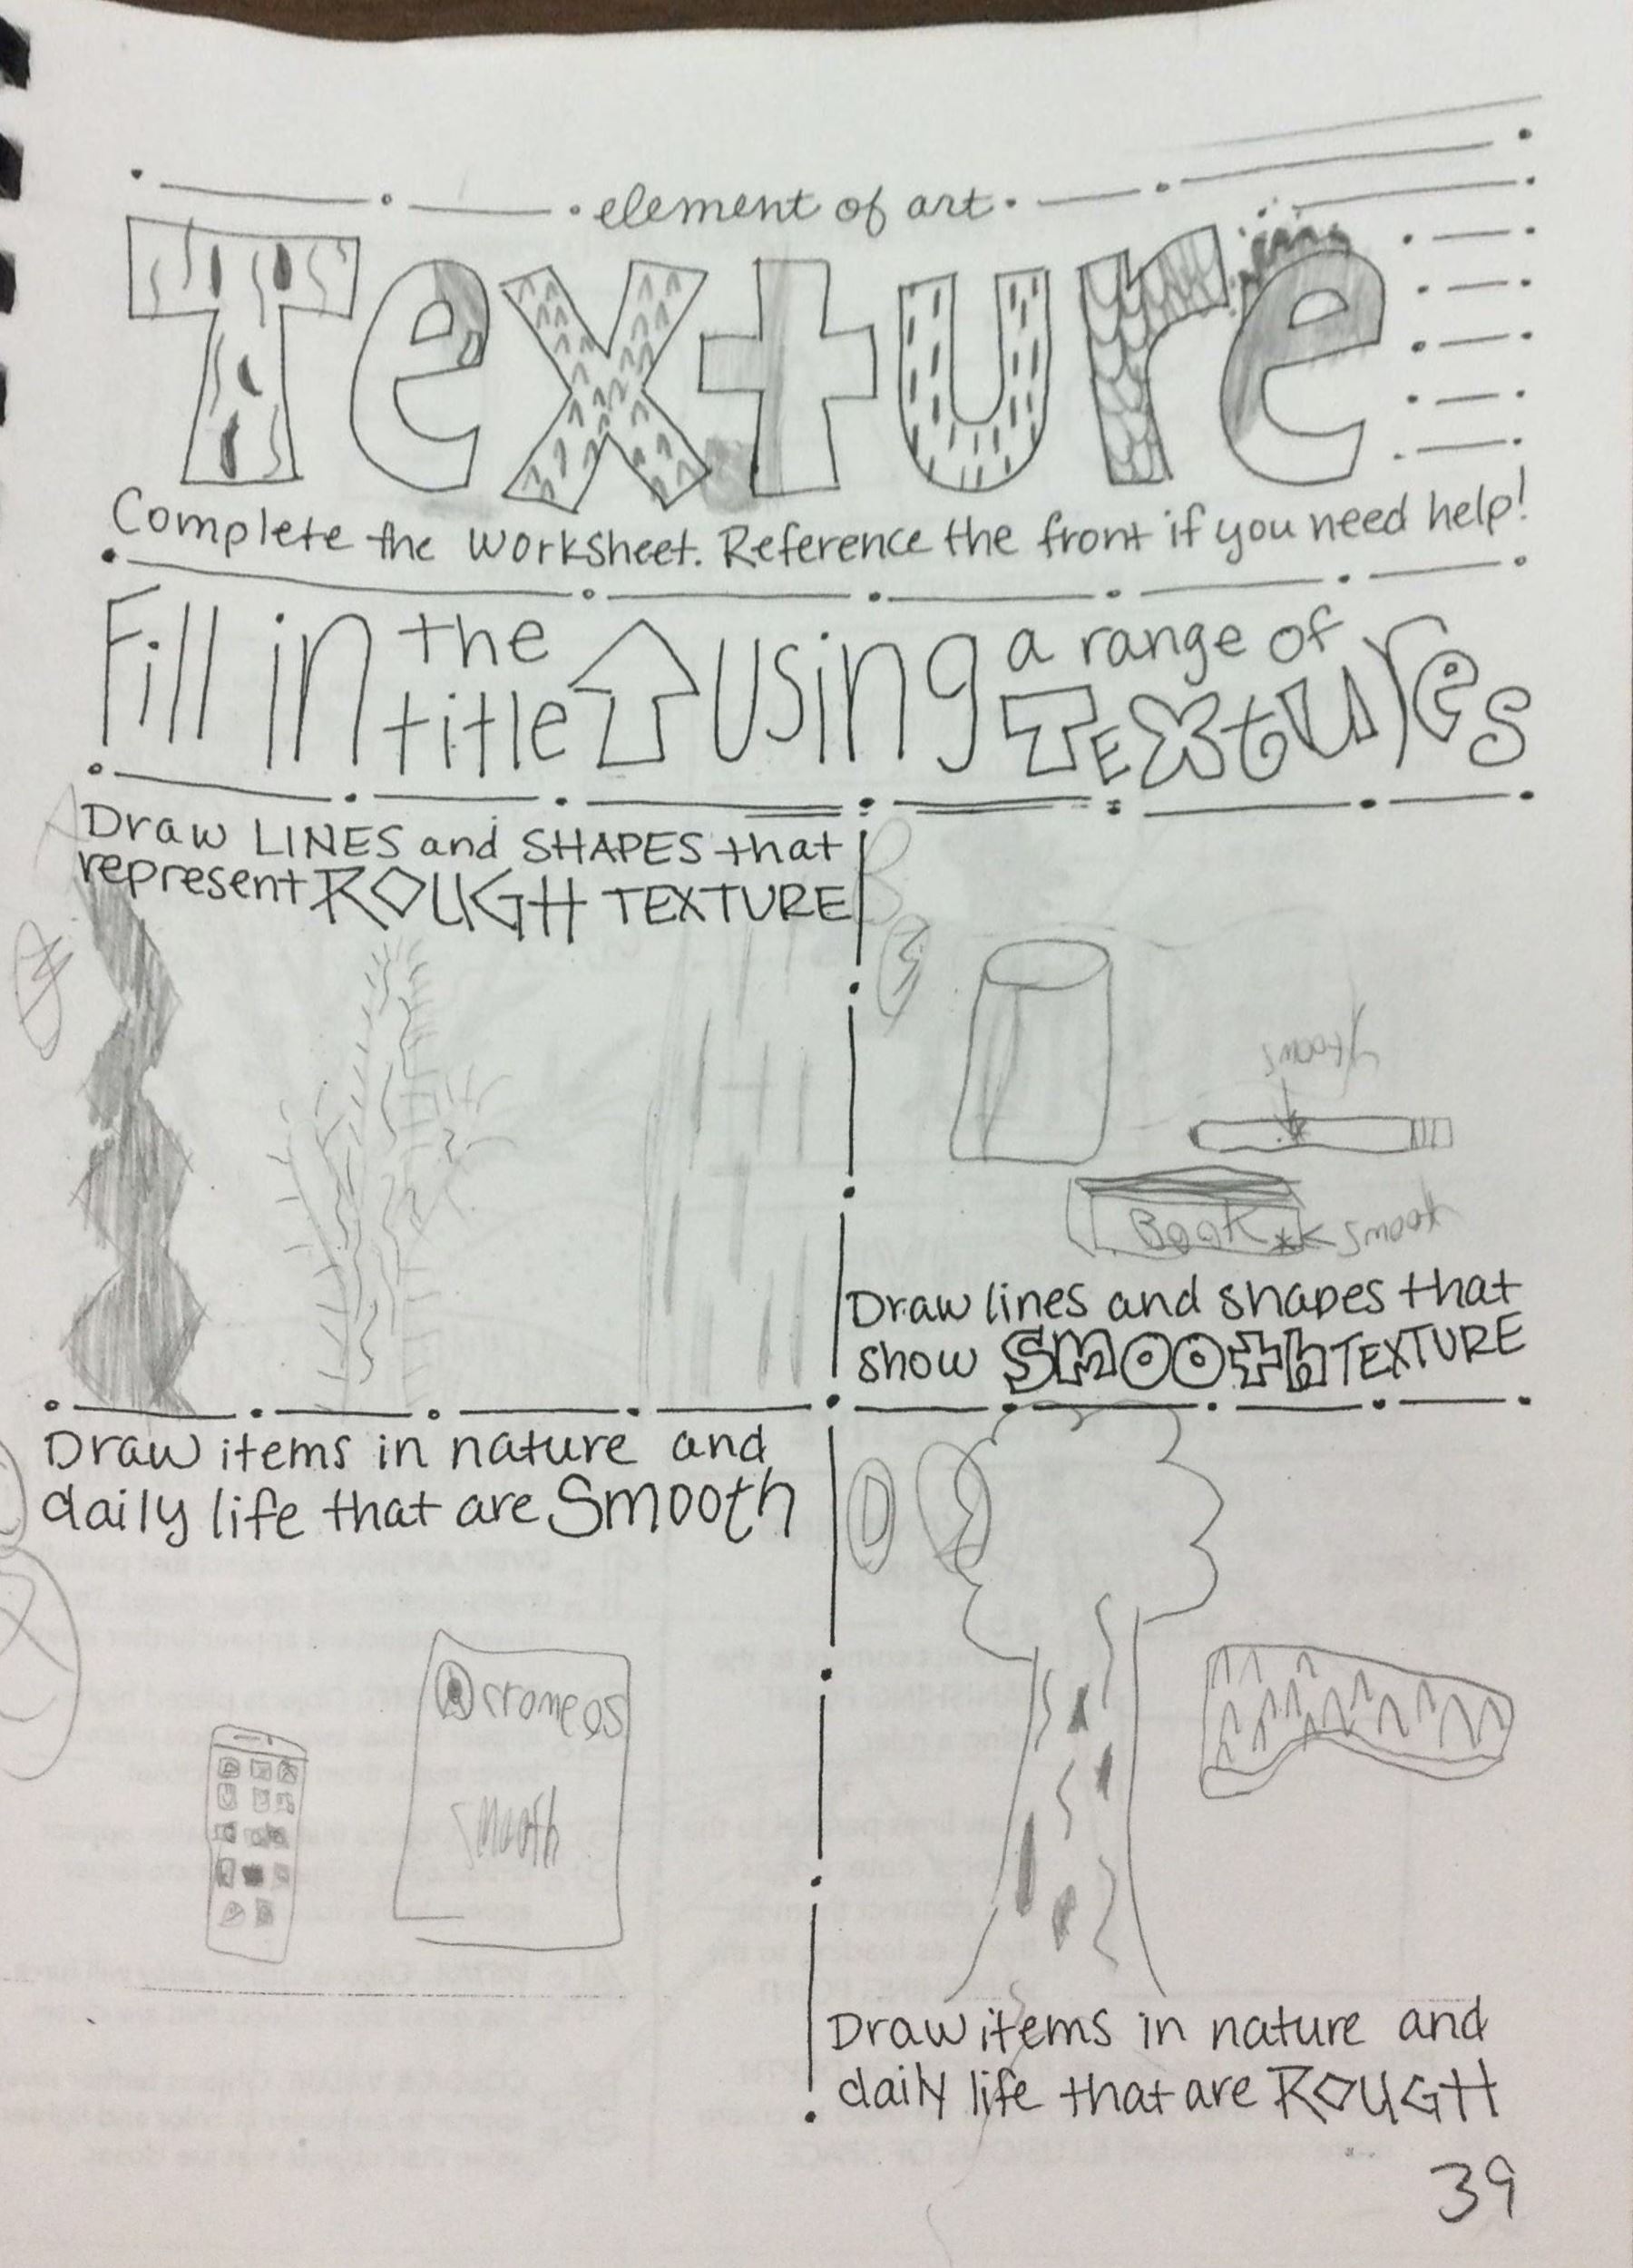 element of art
Texture
Complete the Worksheet. Reference the front if you need help!
Fill in the title using a range of TEXtUres
Draw LINES and SHAPES that
represent ROUGH TEXTURE
B
smooth
BOOK smooth
Draw lines and shapes that
show SMOOth TEXTURE
Draw items in nature and
daily life that are Smooth
D
cromeos
smooth
Draw items in nature and
daily life that are ROUGH
39